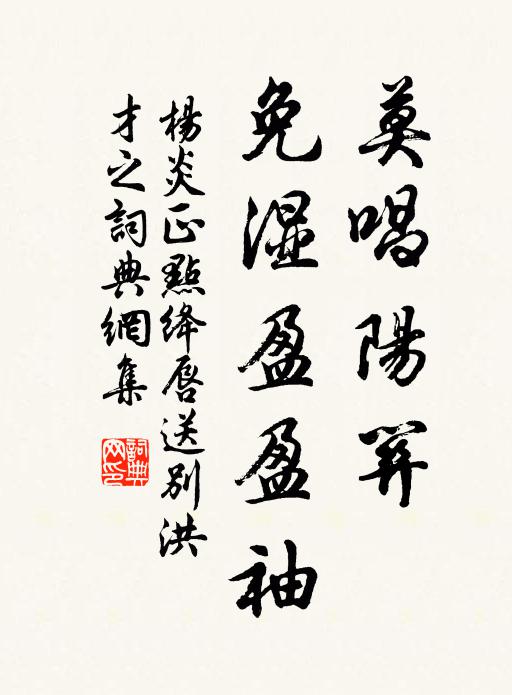 莫唱陽關
免湿盈盈袖
楊炎正點絳唇送別洪
才之詞典網集
詞典网印